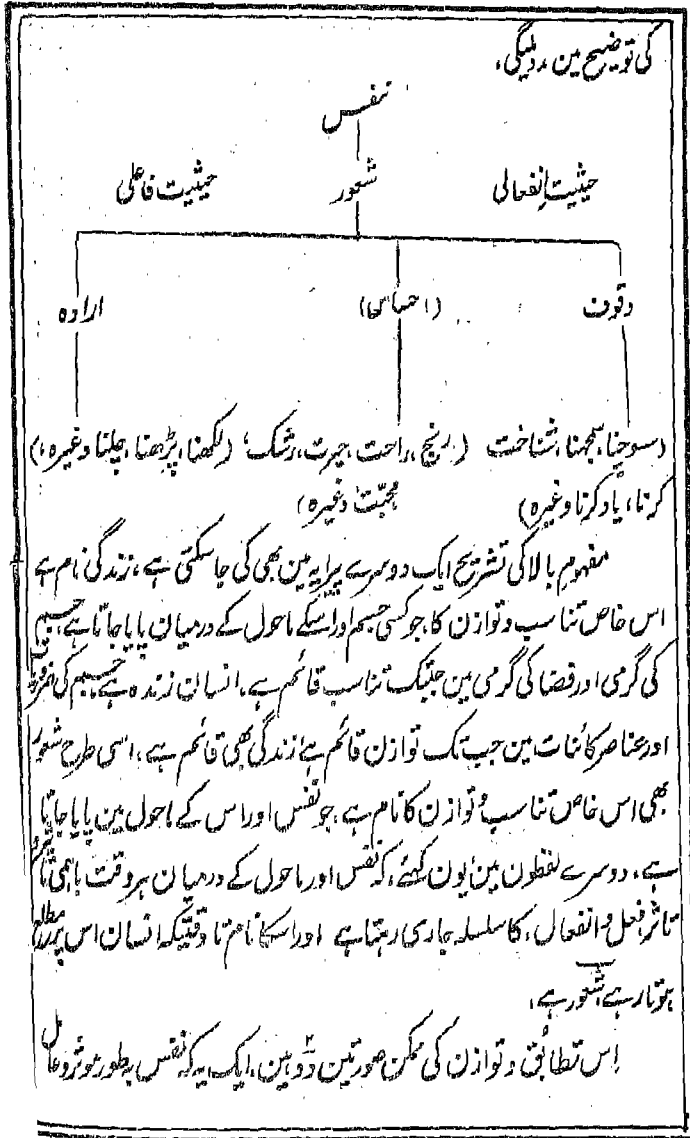 کی توضیح مین مدد ملیگی،
نفس
حیثیتِ انفعالی شعور حیثیت فاعلی
وقوف (احساس) ارادہ
(سوچنا، سمجھنا، شناخت (رنج، راحت، حیرت، رشک، (لکھنا، پڑھنا، چلنا وغیرہ،)
کرنا، یاد کرنا وغیرہ) محبّت وغیرہ)
مفہوم بالا کی تشریح ایک دوسرے پیرایہ مین بھی کی جا سکتی ہے، زندگی نام ہے
اس خاص تناسب و توازن کا، جو کسی جسم اور اسکے ماحول کے درمیان پایا جاتا ہے، جسم
کی گرمی اور فضا کی گرمی مین جبتک تناسب قائم ہے، انسان زندہ ہے، جسم کی
اور عناصر کائنات مین جب تک توازن قائم ہے زندگی بھی قائم ہے، اسی طرح شعور
بھی اس خاص تناسب و توازن کا نام ہے، جو نفس اور اس کے ماحول مین پایا جاتا
ہے، دوسرے لفظون مین یون کہئے، کہ نفس اور ماحول کے درمیان ہر وقت باہمی تاثیر و
تاثر، فعل و انفعال، کا سلسلہ جاری رہتا ہے اور اسکا نام تا وقتیکہ انسان اس پر مطلع
ہوتا رہے، شعور ہے،
اِس تطابُق و توازن کی ممکن صورتین دو ہین، ایک یہ کہ نفس بہ طور موثر و عامل